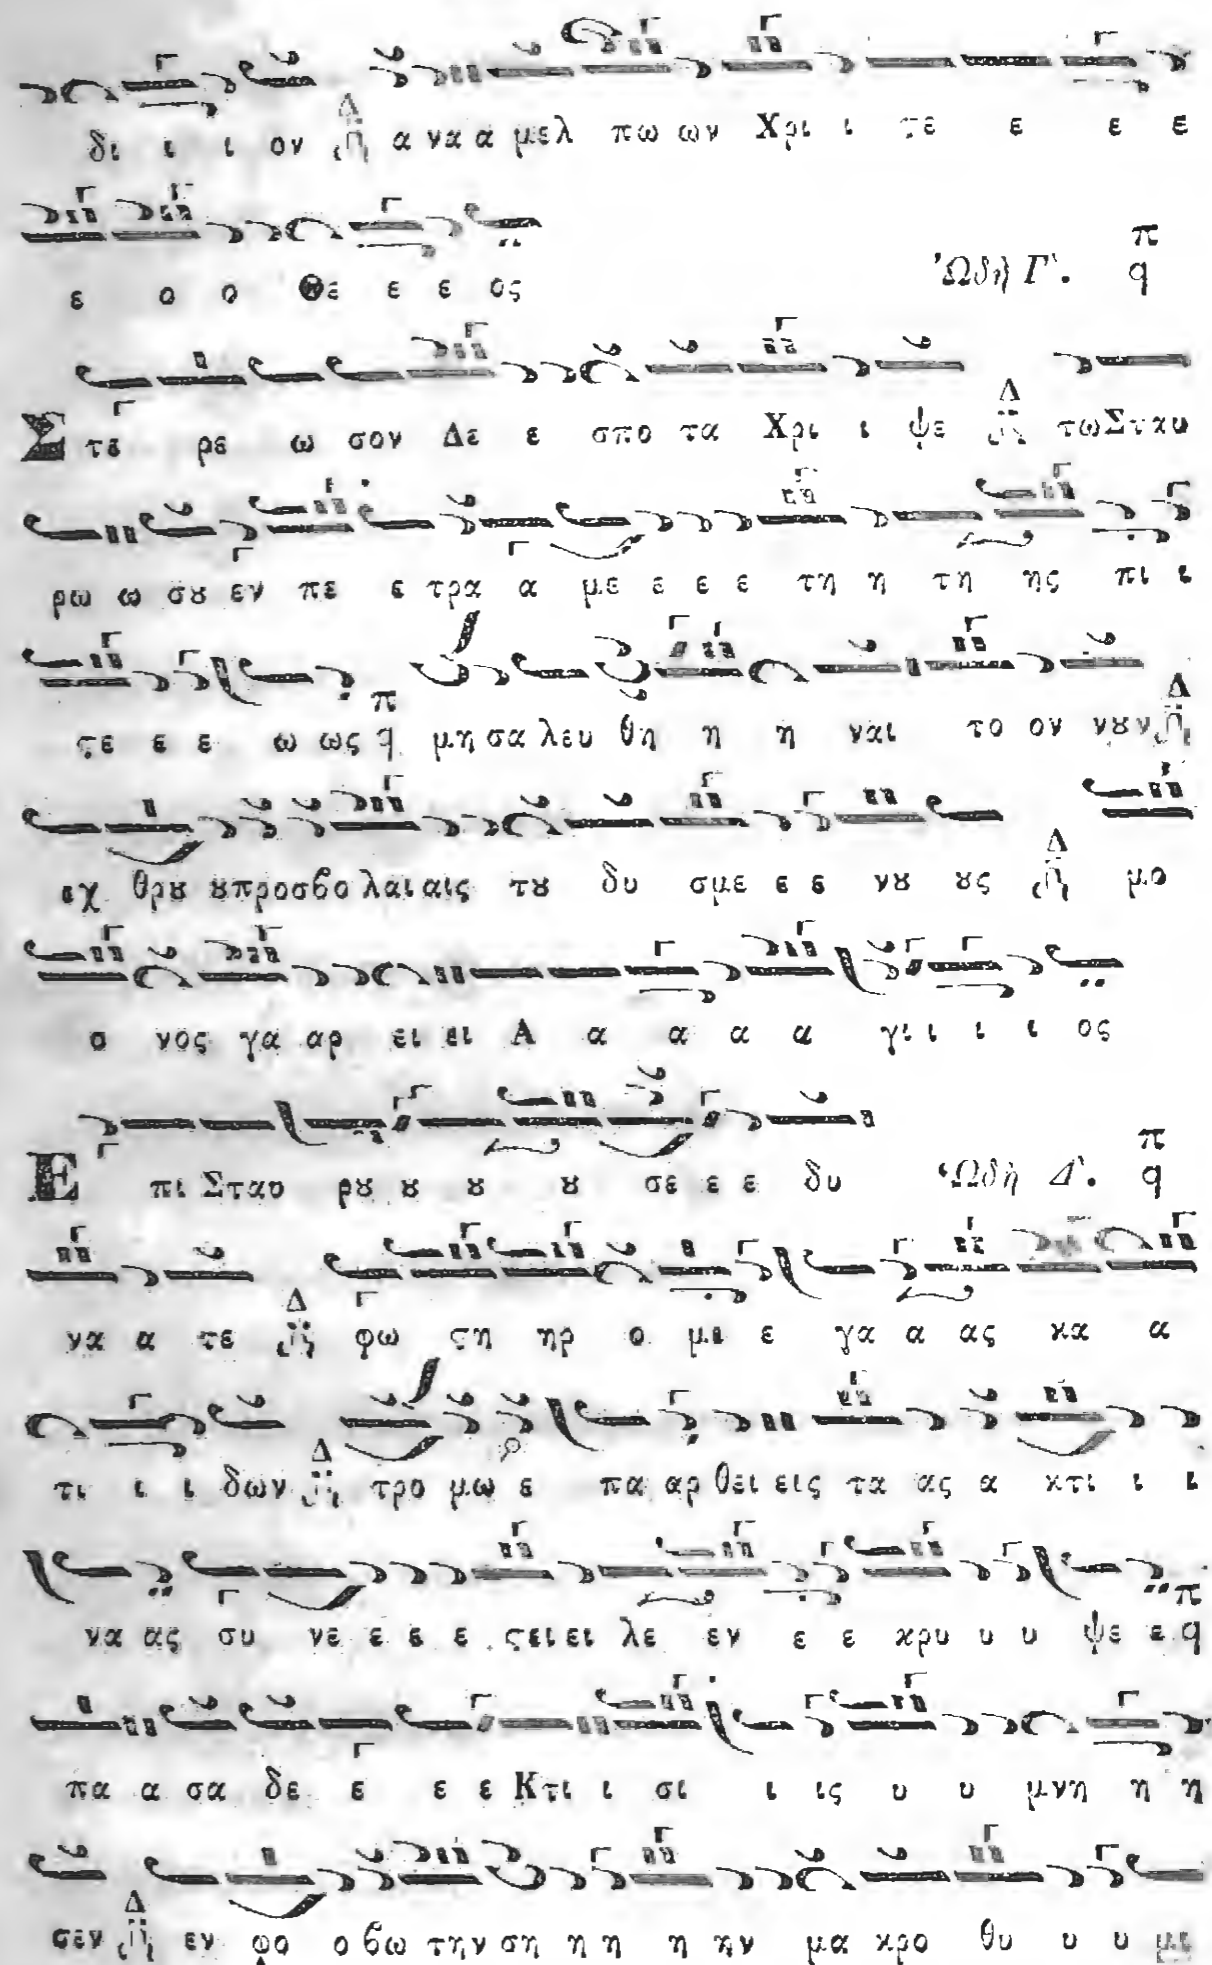 δι ι ι ον Δ α να α μελ πω ων Χρι ι τε ε ε ε
ε ο ο Θε ε ε ος
Ὠδὴ Γ΄. π q
Στε ρε ω σον Δε ε σπο τα Χρι ι ψε Δ τω Σταυ
ρω ω σȣ εν πε ε τρα α με ε ε ε τη η τη ης πι ι
ϛε ε ε ω ως π q μη σα λευ θη η η ναι το ον νȣν Δ
εχ θρȣ ȣ προσβο λαι αις τȣ δυ σμε ε ε νȣ ȣς Δ μο
ο νος γα αρ ει ει Α α α α α γι ι ι ι ος
Ε πι Σταυ ρȣ ȣ ȣ ȣ σε ε ε δυ Ὠδὴ Δ΄. π q
να α τε Δ φω ϛη ηρ ο με ε γα α ας κα α
τι ι ι δων Δ τρο μω ε πα αρ θει εις τα ας α κτι ι ι
να ας συ νε ε ε ε ϛει ει λε εν ε ε κρυ υ υ ψε ε π q
πα α σα δε ε ε ε Κτι ι σι ι ις υ υ μνη η η
σεν Δ εν φο ο βω την ση η η η ην μα κρο θυ υ υ μι